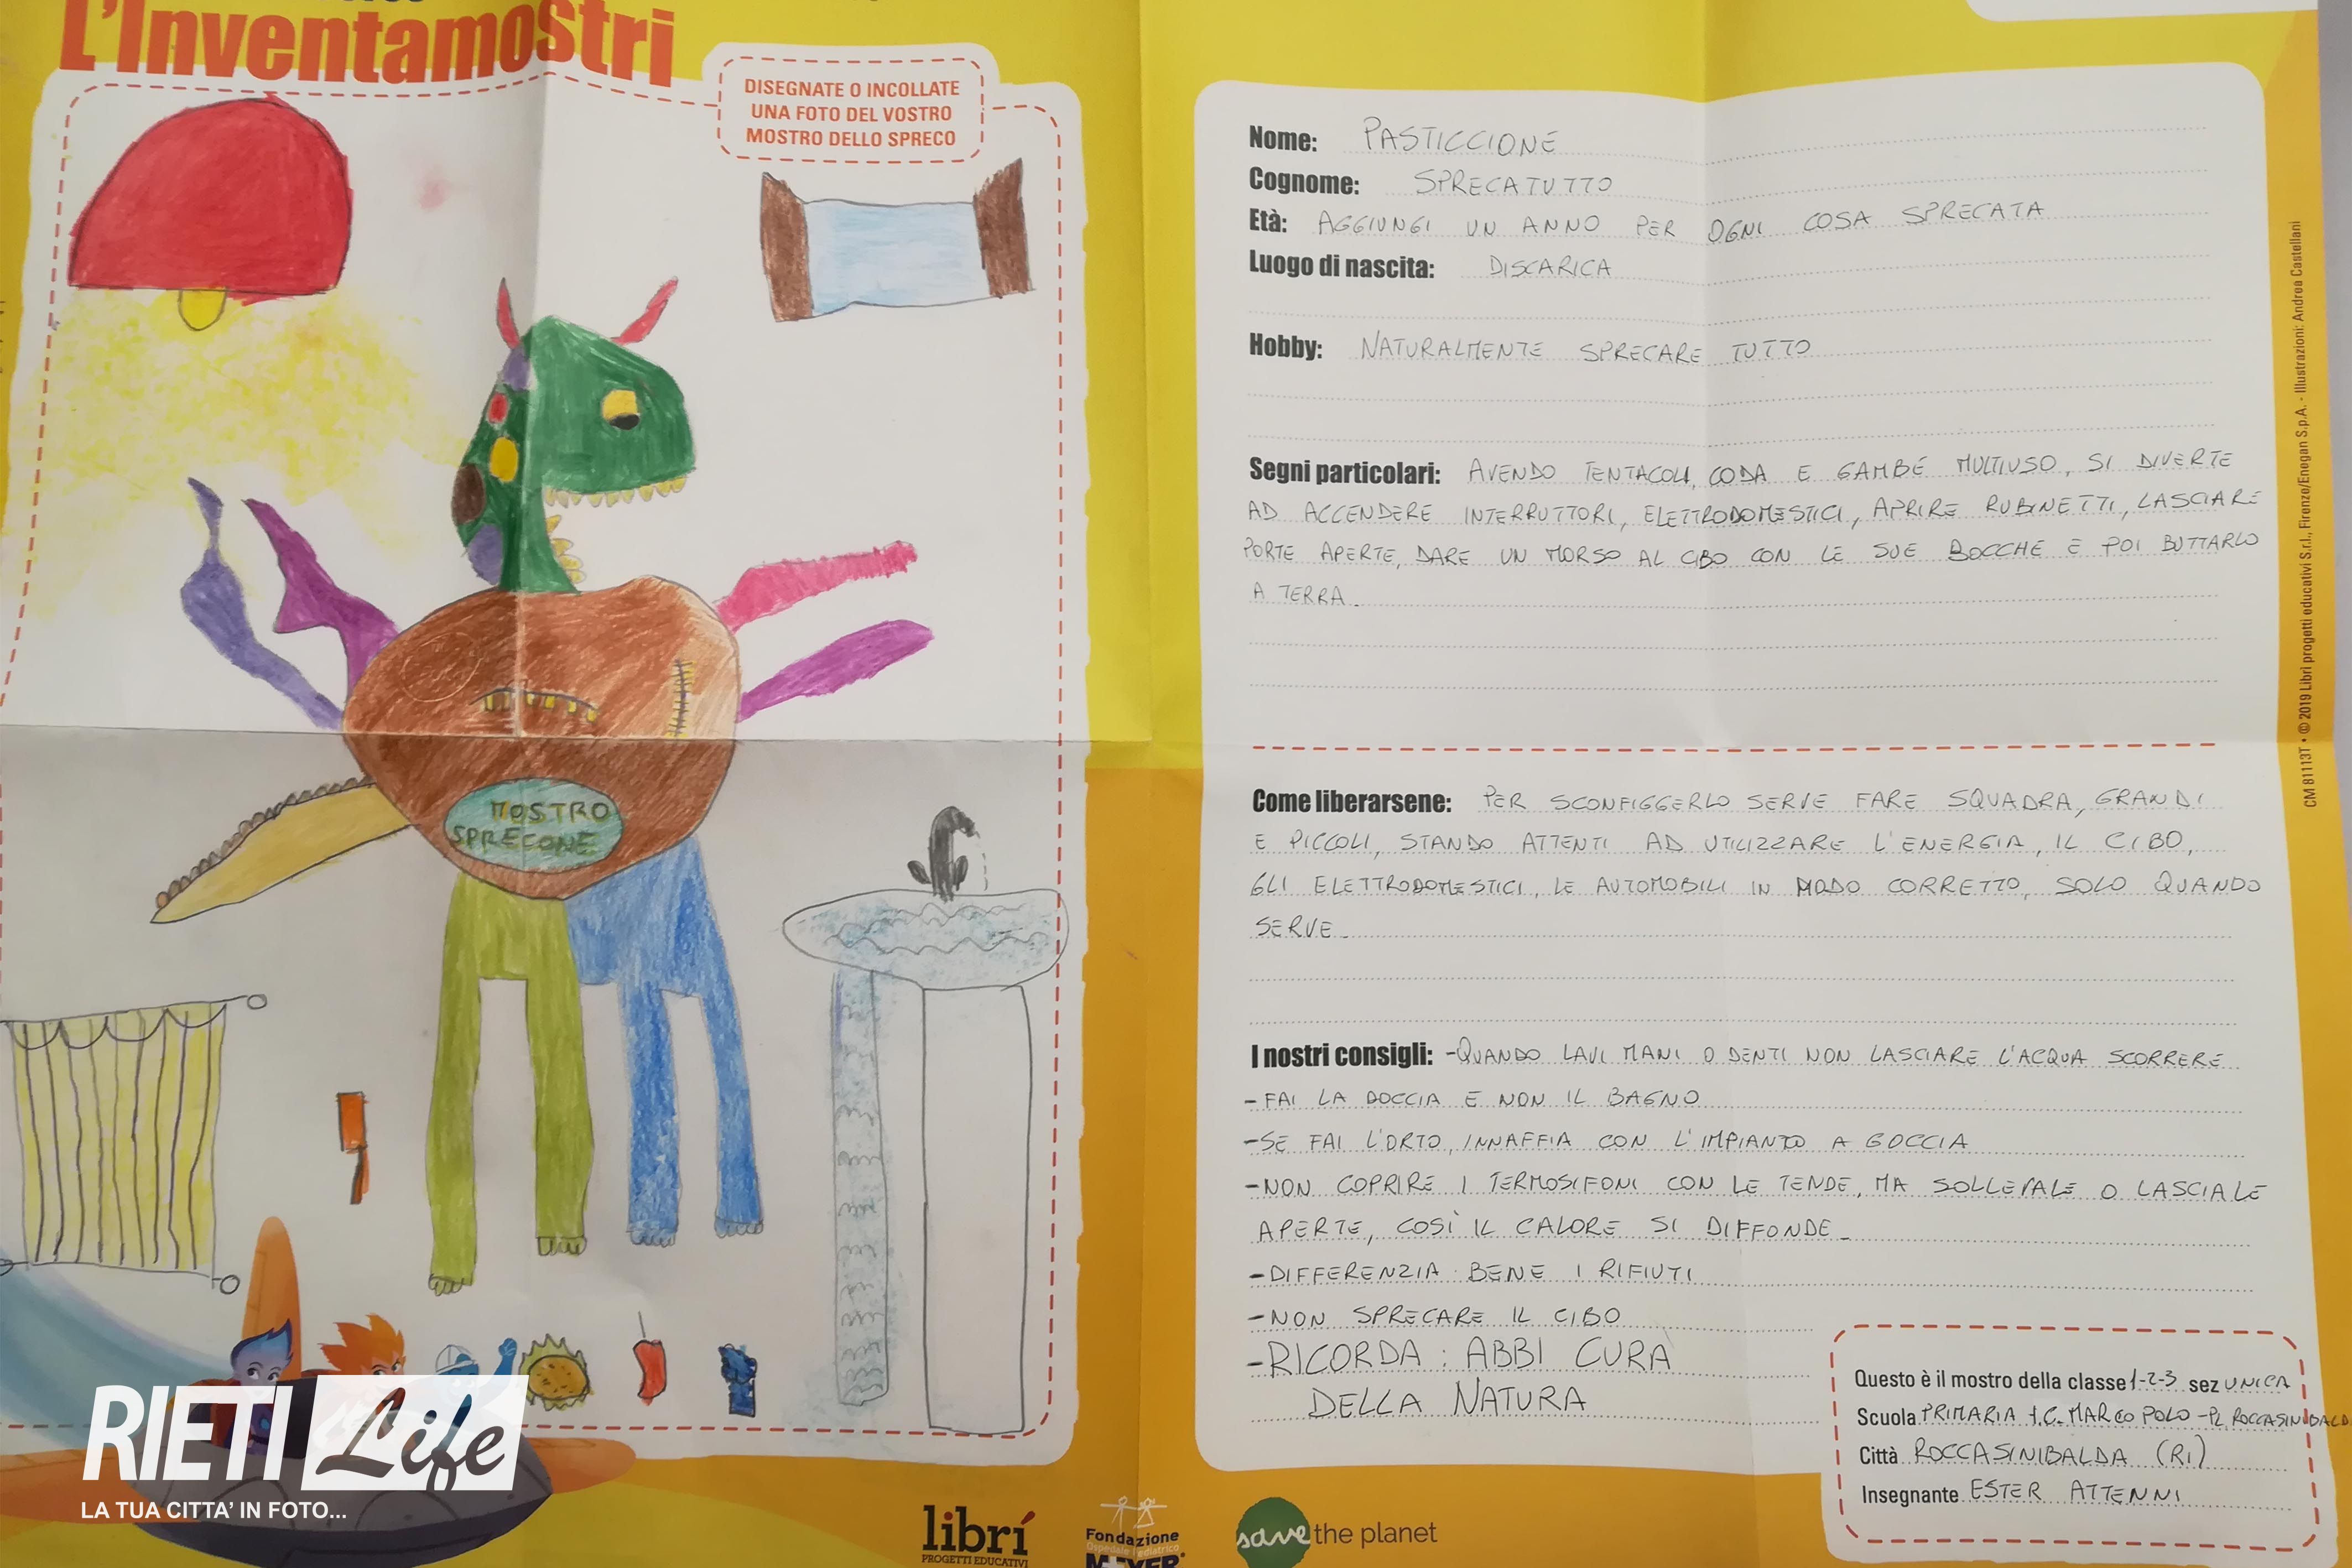 L'Inventamostri
DISEGNATE O INCOLLATE
UNA FOTO DEL VOSTRO
MOSTRO DELLO SPRECO
MOSTRO
SPRECONE
RIETI Life
LA TUA CITTA' IN FOTO...
Nome: PASTICCIONE
Cognome: SPRECATUTTO
Età: AGGIUNGI UN ANNO PER OGNI COSA SPRECATA
Luogo di nascita: DISCARICA
Hobby: NATURALMENTE SPRECARE TUTTO
Segni particolari: AVENDO TENTACOLI, CODA E GAMBE MULTIUSO, SI DIVERTE
AD ACCENDERE INTERRUTTORI, ELETTRODOMESTICI, APRIRE RUBINETTI, LASCIARE
PORTE APERTE, DARE UN MORSO AL CIBO CON LE SUE BOCCHE E POI BUTTARLO
A TERRA.
Come liberarsene: PER SCONFIGGERLO SERVE FARE SQUADRA, GRANDI
E PICCOLI, STANDO ATTENTI AD UTILIZZARE L'ENERGIA, IL CIBO,
GLI ELETTRODOMESTICI, LE AUTOMOBILI IN MODO CORRETTO, SOLO QUANDO
SERVE.
I nostri consigli: -QUANDO LAVI MANI O DENTI NON LASCIARE L'ACQUA SCORRERE
-FAI LA DOCCIA E NON IL BAGNO
-SE FAI L'ORTO, INNAFFIA CON L'IMPIANTO A GOCCIA
-NON COPRIRE I TERMOSIFONI CON LE TENDE, MA SOLLEVALE O LASCIALE
APERTE, COSÌ IL CALORE SI DIFFONDE.
-DIFFERENZIA BENE I RIFIUTI
-NON SPRECARE IL CIBO
-RICORDA: ABBI CURA
DELLA NATURA
Questo è il mostro della classe 1-2-3 sez UNICA
Scuola PRIMARIA I.C. MARCO POLO - PL ROCCASINIBALDA
Città ROCCASINIBALDA (RI)
Insegnante ESTER ATTENNI
librí
PROGETTI EDUCATIVI
Fondazione
Ospedale Pediatrico
MEYER
save the planet
CM 81113T • © 2019 Librì progetti educativi S.r.l., Firenze/Enegan S.p.A. - Illustrazioni: Andrea Castellani